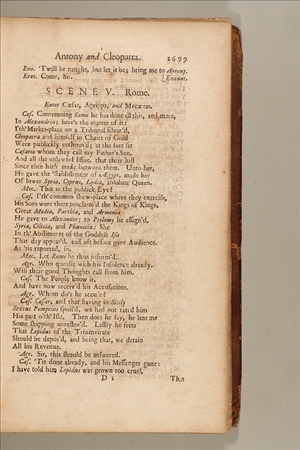 Antony and Cleopatra. 2699
Eno. 'Twill be naught, but let it be; bring me to Antony.
Eros. Come, Sir. [Exeunt.
SCENE V. Rome.
Enter Cæsar, Agrippa, and Mecænas.
Cæs. Contemning Rome he has done all this, and more,
In Alexandria; here's the matter of it:
I'th' Market-place on a Tribunal silver'd,
Cleopatra and himself in Chairs of Gold
Were publickly enthron'd; at the feet sat
Cæsario whom they call my Father's Son,
And all the unlawful Issue, that their lust
Since then hath made between them. Unto her,
He gave the 'stablishment of Ægypt, made her
Of lower Syria, Cyprus, Lydia, absolute Queen.
Mec. This in the publick Eye?
Cæs. I'th' common shew-place where they exercise,
His Sons were there proclaim'd the Kings of Kings,
Great Media, Parthia, and Armenia
He gave to Alexander; to Ptolomy he assign'd,
Syria, Cilicia, and Phœnicia: She
In th' Abiliments of the Goddess Isis
That day appear'd, and oft before gave Audience,
As 'tis reported, so.
Mec. Let Rome be thus inform'd.
Agr. Who queasie with his Insolence already,
Will their good Thoughts call from him.
Cæs. The People know it,
And have now receiv'd his Accusations.
Agr. Whom do's he accuse?
Cæs. Cæsar, and that having in Sicily
Sextus Pompeius spoil'd, we had not rated him
His part o'th' Isle. Then does he say, he lent me
Some shipping unrestor'd. Lastly he frets
That Lepidus of the Triumvirate
Should be depos'd, and being that, we detain
All his Revenue.
Agr. Sir, this should be answered.
Cæs. 'Tis done already, and his Messenger gone:
I have told him Lepidus was grown too cruel,
D 2 That